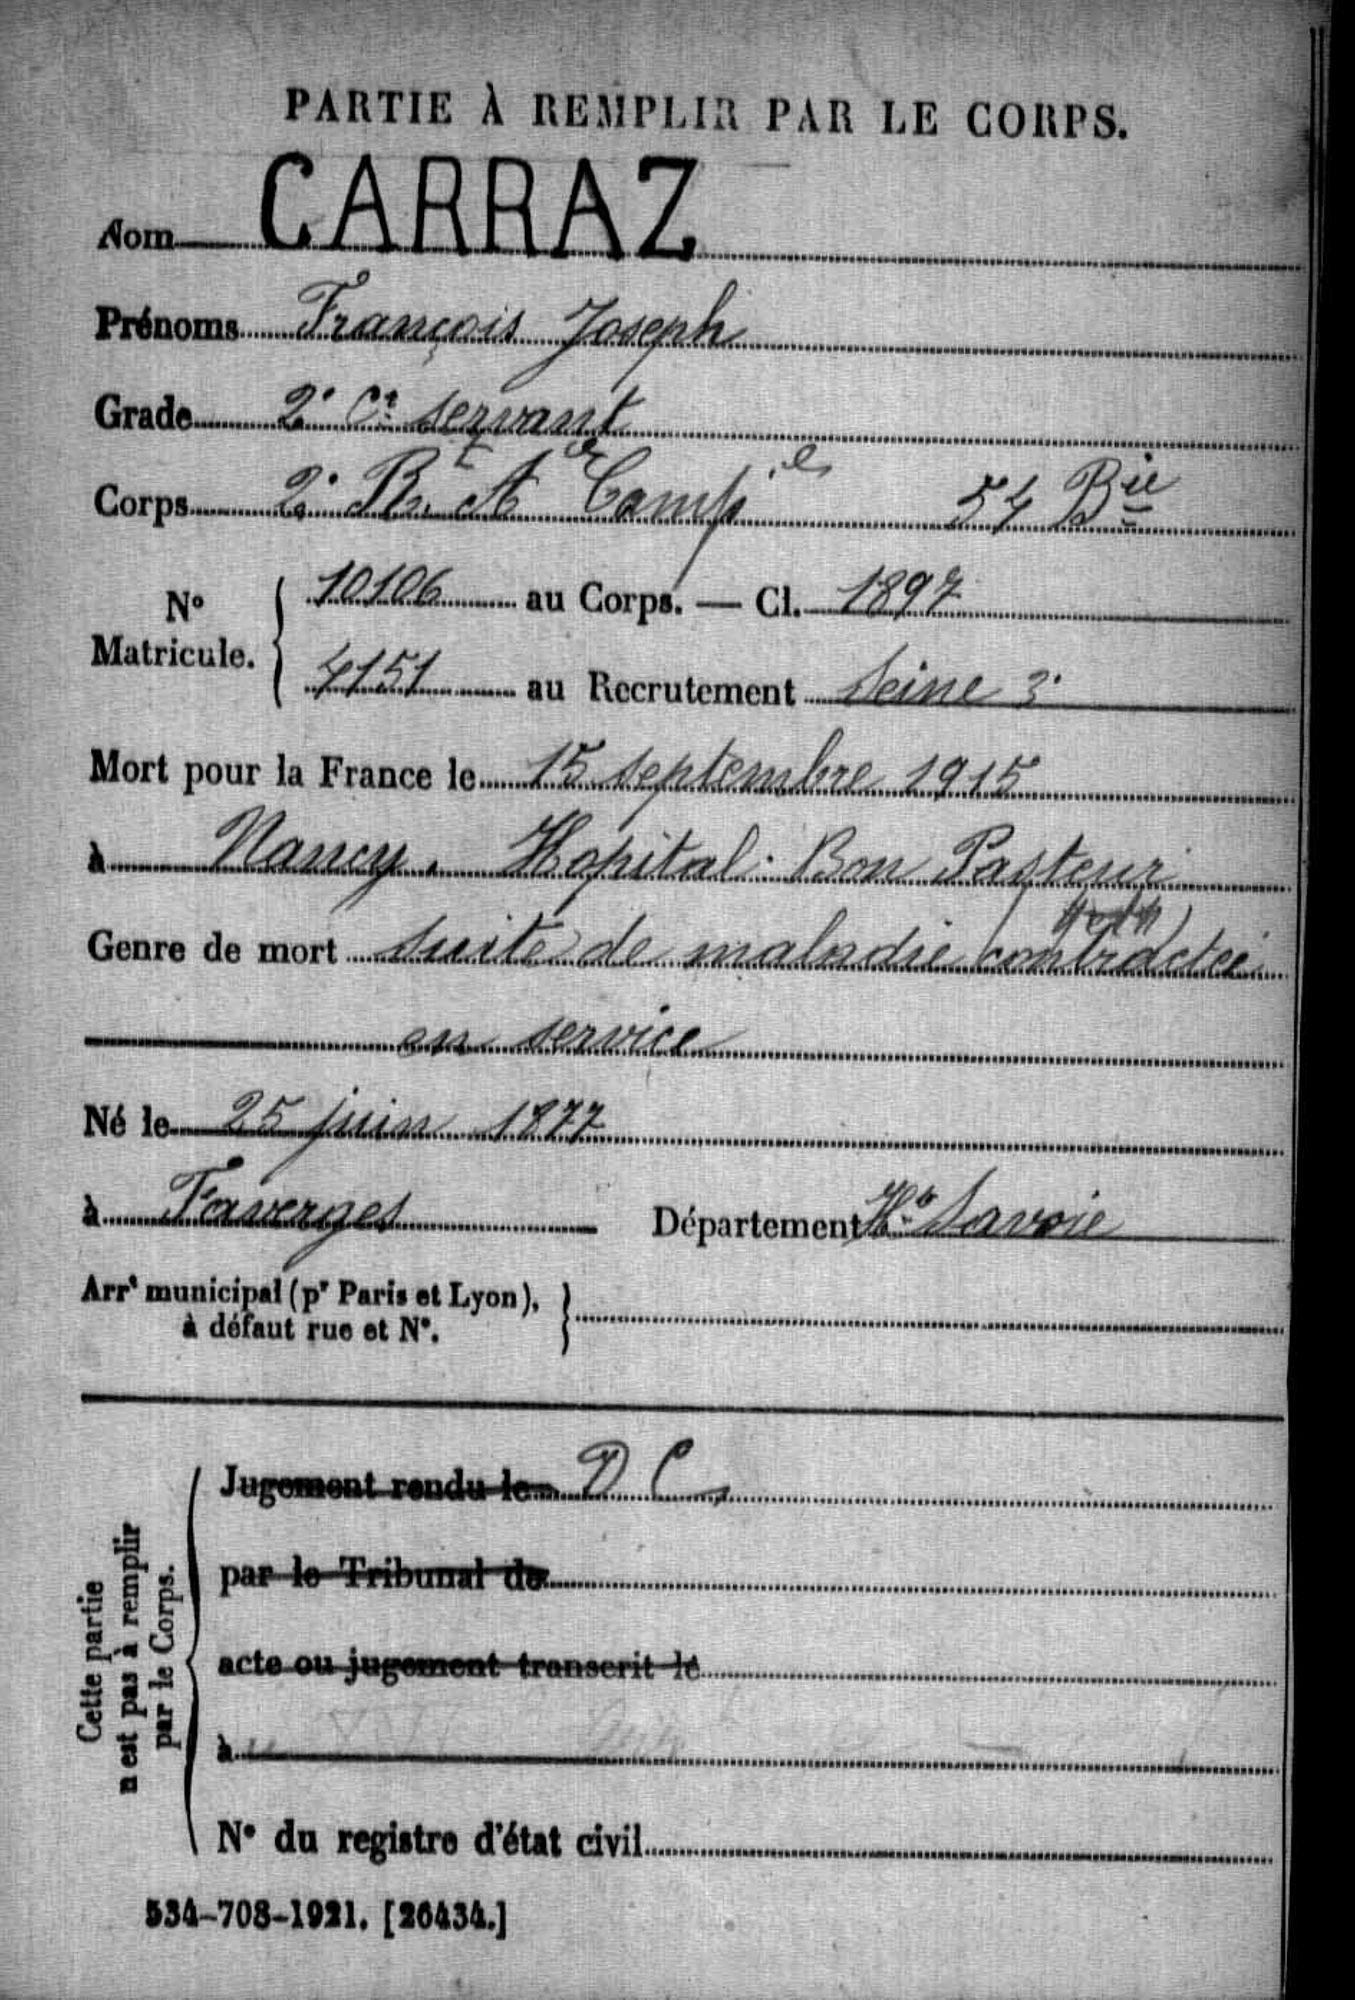 PARTIE À REMPLIR PAR LE CORPS.
Nom CARRAZ
Prénoms François Joseph
Grade 2e Ct servant
Corps 2e Rt. Ae Camp 54 Bie
No Matricule. 10106 au Corps. — Cl. 1897
4151 au Recrutement Seine 3e
Mort pour la France le 15 septembre 1915
à Nancy. Hopital: Bon Pasteur
Genre de mort suite de maladie contractée
en service
Né le 25 juin 1877
à Faverges Département Hte Savoie
Arrt municipal (pr Paris et Lyon),
à défaut rue et No.
Cette partie
n'est pas à remplir
par le Corps.
Jugement rendu le D C
par le Tribunal de
acte ou jugement transcrit le
à
No du registre d'état civil
534-708-1921. [26434.]